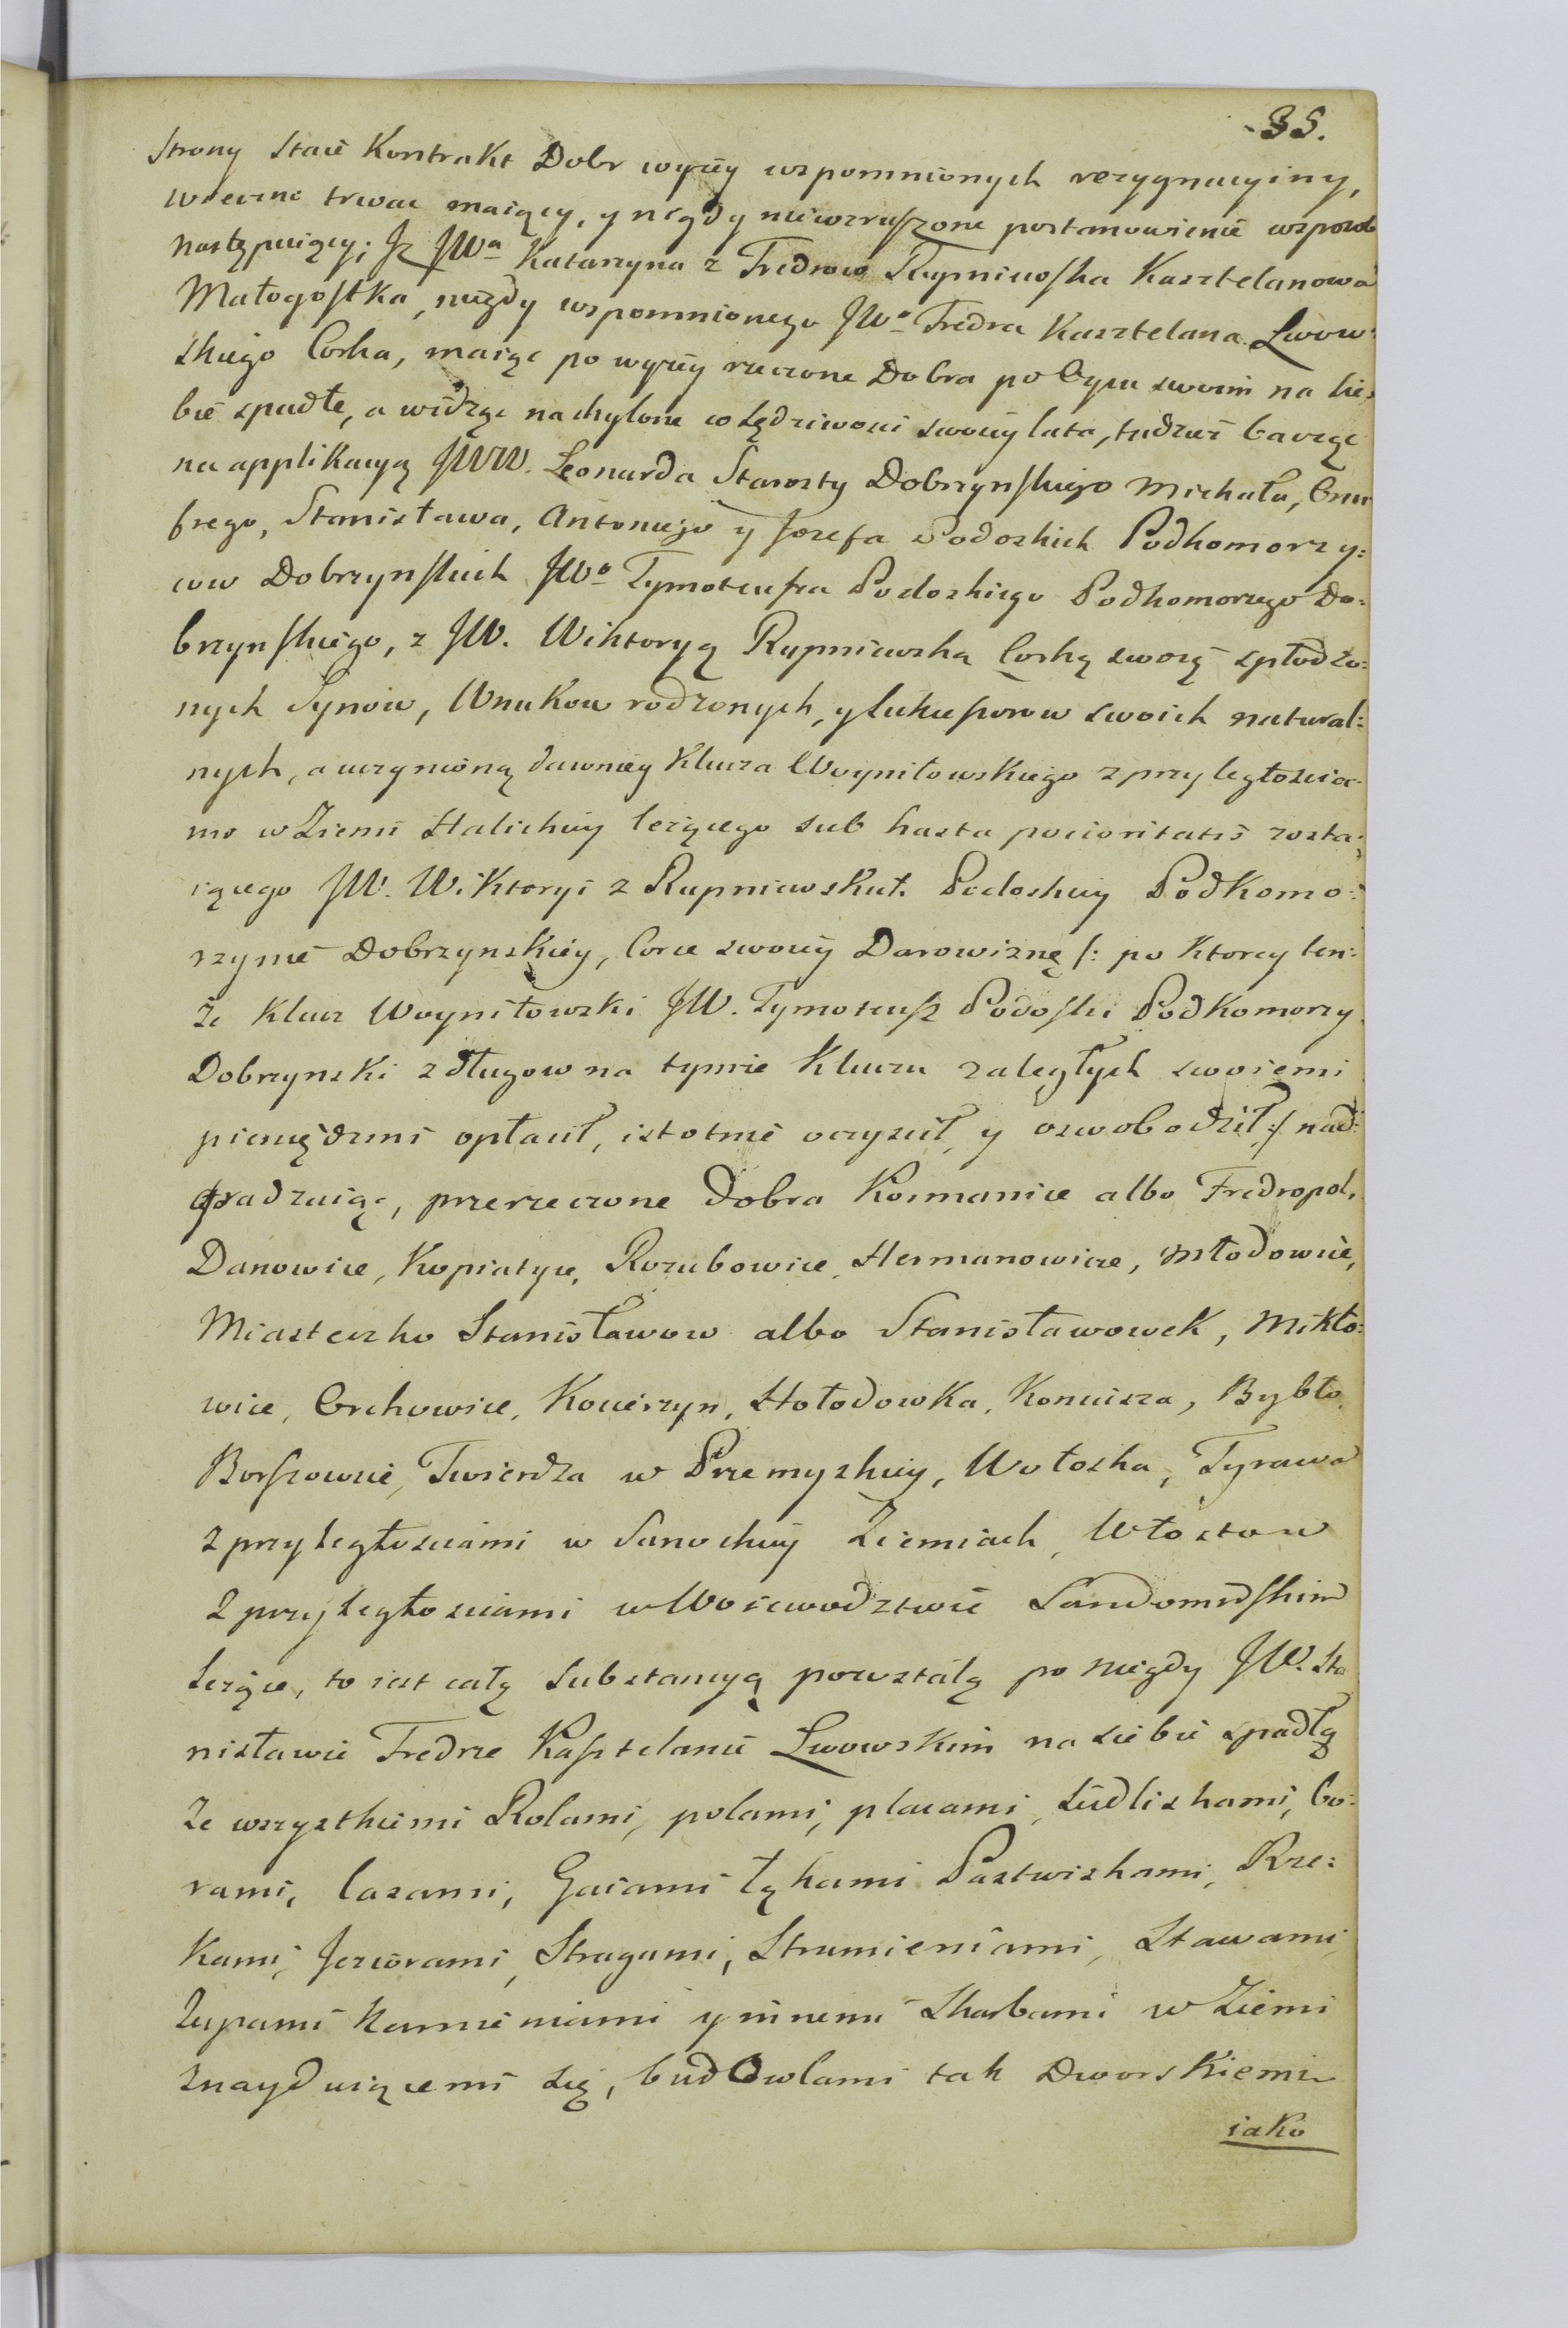 35.
Strony Staie Kontrakt Dobr wyżey wspomnionych rezygnacyiny,
wiecznie trwac maiący, y nigdy niewzruszone postanowienie wsposob
następuiący; Jż JWa Katarzyna z Fredrow Rupniewska Kasztelanowa
Małogostka, niegdy wspomnionego JWo Fredra Kasztelana Lwow:
skiego Corka, maiąc po wyżey rzeczone Dobra po Oycu swoim na sie:
bie spadłe, a widząc nachylone w sędziwości swoiey lata, tudzież bacząc
na applikacyą JWW. Leonarda Starosty Dobrzynskiego Michała, Onu
frego, Stanisława, Antoniego y Jozefa Podoskich Podkomorzy:
cow Dobrzynskich JWo Tymoteusza Podoskiego Podkomorzego Do:
brzynskiego, z JW. Wiktoryą Rupniewską Corką swoią spłodzo:
nych Synow, Wnukow rodzonych, y sukcessorow swoich natural:
nych, a uczynioną dawniey Klucza Woyniłowskiego z przyległoscia:
mi w Ziemi Halickiey leżącego sub hasta pocioritatis zosta:
iącego JW. Wiktoryi z Rupniewskich Podoskiey Podkomo:
rzynie Dobrzynskiey, Corce swoiey Darowiznę /: po Ktorey ten:
że Klucz Woyniłowski JW. Tymoteusz Podoski Podkomorzy
Dobrzynski z długow na tymże Kluczu zaległych swoiemi
pieniędzmi opłacił, istotnie oczyscił, y oswobodził :/ nad:
gradzaiąc, przerzeczone Dobra Kormanice albo Fredropol,
Darowice, Kopiatyce, Rozubowice, Hermanowice, Młodowice,
Miasteczko Stanisławow albo Stanisławowek, Mikło:
wice, Orchowice, Kocierzyn, Hołodowka, Koniusza, Bybło,
Borszowice, Twierdza w Przemyskiey, Wołoska, Tyrawa
z przyległosciami w Sanockiey Ziemiach, Włostow
z przyległosciami w Woiewodztwie Sandomirskim
leżące, to iest całą Substancyą powstałą po niegdy JW. Sta
nisławie Fredrze Kasztelanie Lwowskim na siebie spadłą
ze wszystkiemi Rolami, polami, placami, siedliskami, bo:
rami, lasami, Gaiami łąkami Pastwiskami, Rze:
kami, Jeziorami, Strugami, Strumieniami, Stawami,
Żupami Kamieniami y innemi Skarbami w Ziemi
znayduiącemi się, budowlami tak Dworskiemi
iako